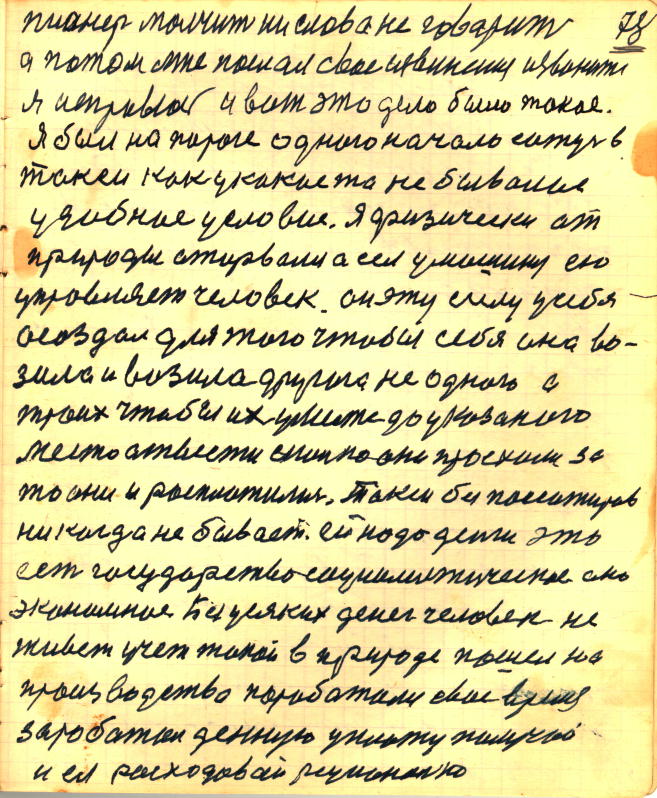 78
пианер молчит ни слова не говарит
а потом мне послал свае извинения извените
я неправый и вот это дело было такое.
Я был на пороге одного начало сажусь в
такси как у какоета не бывалае
удобнае условие. Я физически от
природы оторвался сел у машину ею
управляет человек. он эту силу у себя
создал для того чтобы себя она во-
зила и возила другога не одного а
троих чтобы их у место до указаного
место отвести сколко они проехали за
то они и росплотилися. Такси без пассажиров
никогда не бывает. ей надо денги это
ест государство социалистическое оно
экономное Без усяких денег человек не
живет учет такой в природе пошел на
производство поработали свае время
заработал денную уплату получай
и ея расходавай рецианално